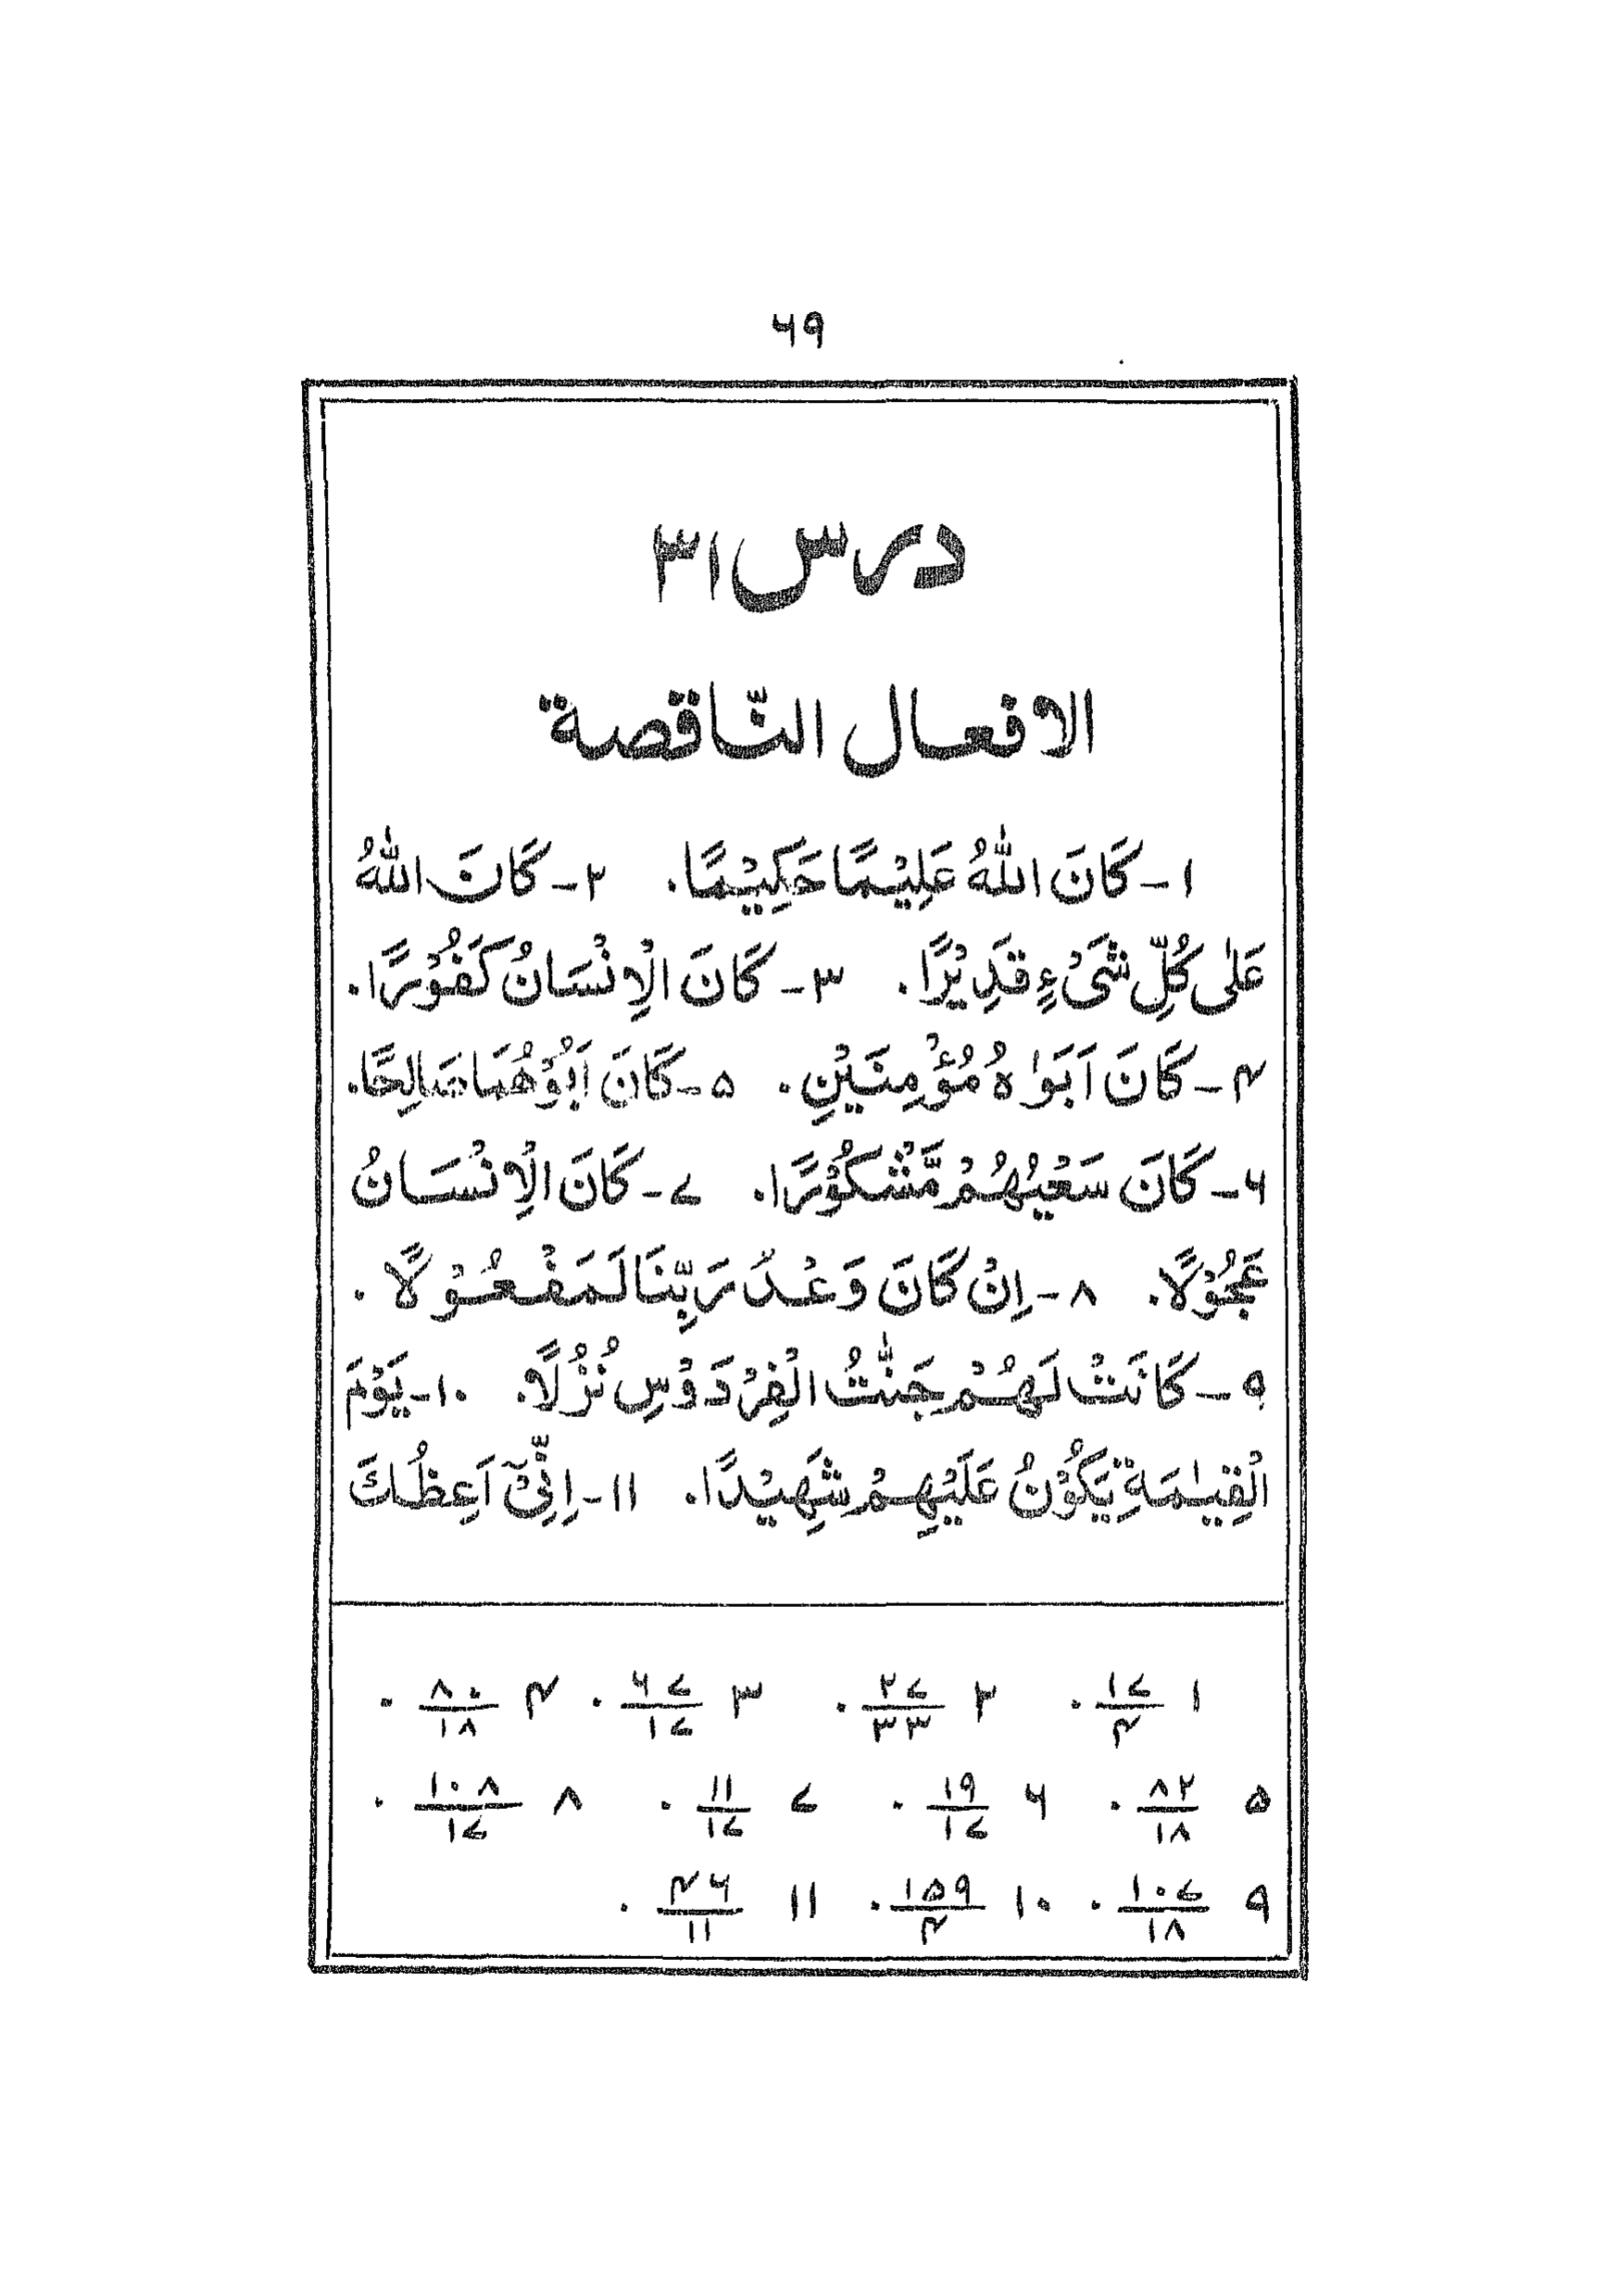 ۶۹
درس ۳۱
الافعال النّاقصة
۱- كَانَ اللّٰهُ عَلِيْمًا حَكِيْمًا. ۲- كَانَ اللّٰهُ
عَلٰى كُلِّ شَىْءٍ قَدِيْرًا. ۳- كَانَ الْاِنْسَانُ كَفُوْرًا.
۴- كَانَ اَبَوٰاهُ مُؤْمِنَيْنِ. ۵- كَانَ اَبُوْهُمَا صَالِحًا.
۶- كَانَ سَعْيُهُمْ مَّشْكُوْرًا. ۷- كَانَ الْاِنْسَانُ
عَجُوْلًا. ۸- اِنْ كَانَ وَعْدُ رَبِّنَا لَمَفْعُوْلًا.
۹- كَانَتْ لَهُمْ جَنّٰتُ الْفِرْدَوْسِ نُزُلًا. ۱۰- يَوْمَ
الْقِيٰمَةِ يَكُوْنُ عَلَيْهِمْ شَهِيْدًا. ۱۱- اِنِّىْٓ اَعِظُكَ
۱ ۱۷/۴. ۲ ۲۷/۳۳. ۳ ۶۷/۱۷. ۴ ۸۰/۱۸.
۵ ۸۲/۱۸. ۶ ۱۹/۱۷. ۷ ۱۱/۱۷. ۸ ۱۰۸/۱۷.
۹ ۱۰۷/۱۸. ۱۰ ۱۵۹/۴. ۱۱ ۴۶/۱۱.